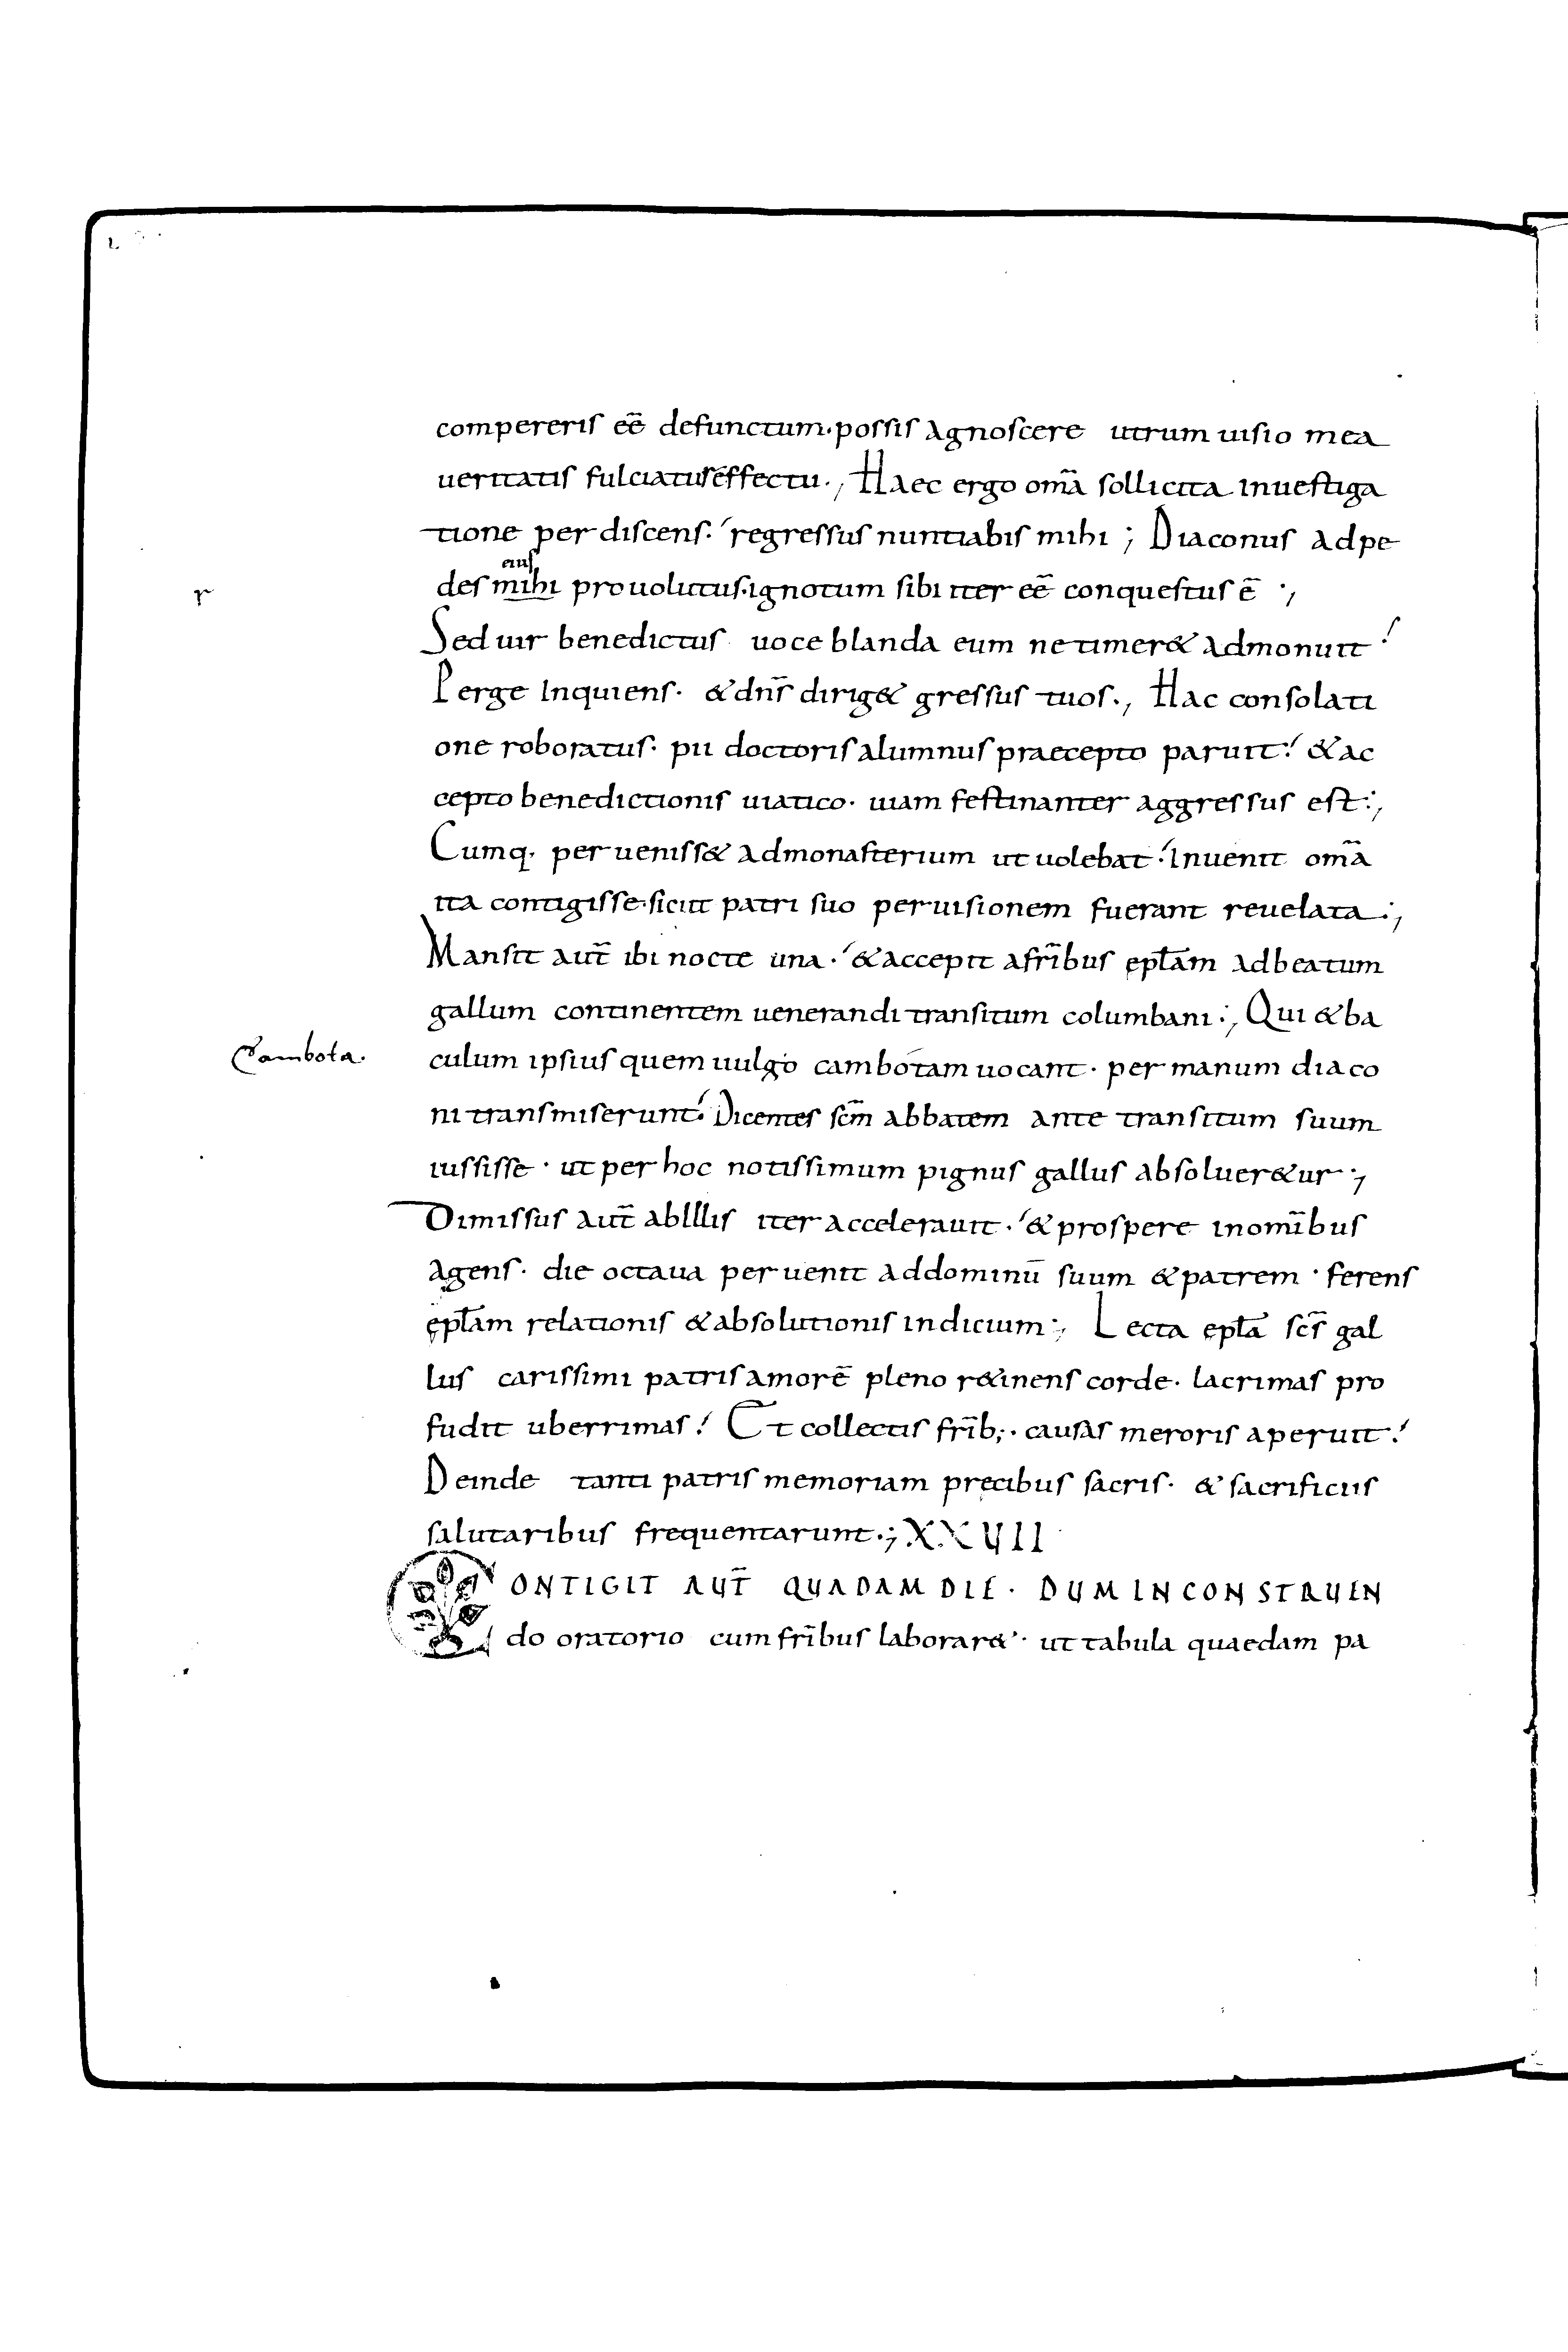 compereris eē defunctum · possis agnoscere utrum uisio mea
ueritatis fulciatur effectu ·, Haec ergo om̄a sollicita inuestiga
tione per discens · regressus nuntiabis mihi ; Diaconus adpe
eius
r
des mihi prouolutus · ignotum sibi iter eē conquestus ē ·,
Sed uir benedictus uoce blanda eum ne timer& admonuit
Perge inquiens · & dn̄s dirig& gressus tuos ·, Hac consolati
one roboratus · pii doctoris alumnus praecepto paruit & ac
cepto benedictionis uiatico · uiam festinanter aggressus est :,
Cumq· perueniss& ad monasterium ut uolebat inuenit om̄a
ita contigisse · sicut patri suo per uisionem fuerant reuelata :,
Mansit aut̄ ibi nocte una · & accepit a fr̄ibus epl̄am ad beatum
gallum continentem uenerandi transitum columbani :, Qui & ba
Cambota.
culum ipsius quem uulgo cambotam uocant · per manum diaco
ni transmiserunt Dicentes sc̄m abbatem ante transitum suum
iussisse · ut per hoc notissimum pignus gallus absoluer&ur ;
Dimissus aut̄ ab illis iter accelerauit · & prospere in om̄ibus
agens · die octaua peruenit ad dominū suum & patrem · ferens
ępl̄am relationis & absolutionis indicium :, Lecta ępl̄a sc̄s gal
lus carissimi patris amorē pleno r&inens corde · lacrimas pro
fudit uberrimas Et collectis fr̄ib; · causas meroris aperuit
Deinde tanti patris memoriam pręcibus sacris · & sacrificiis
salutaribus frequentarunt ·; XXVII
CONTIGIT AUT̄ QUADAM DIE · DUM IN CONSTRUEN
do oratorio cum fr̄ibus laborar& · ut tabula quaedam pa